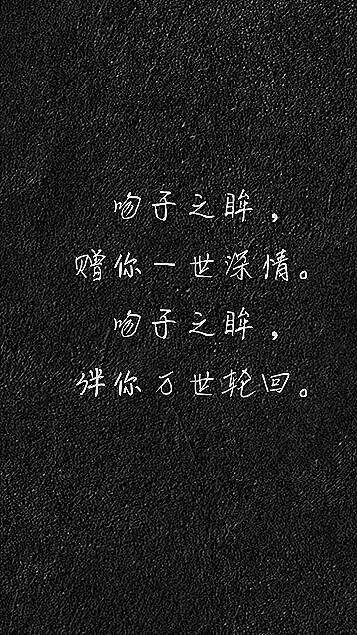 吻子之眸，
赠你一世深情。
吻子之眸，
绊你万世轮回。